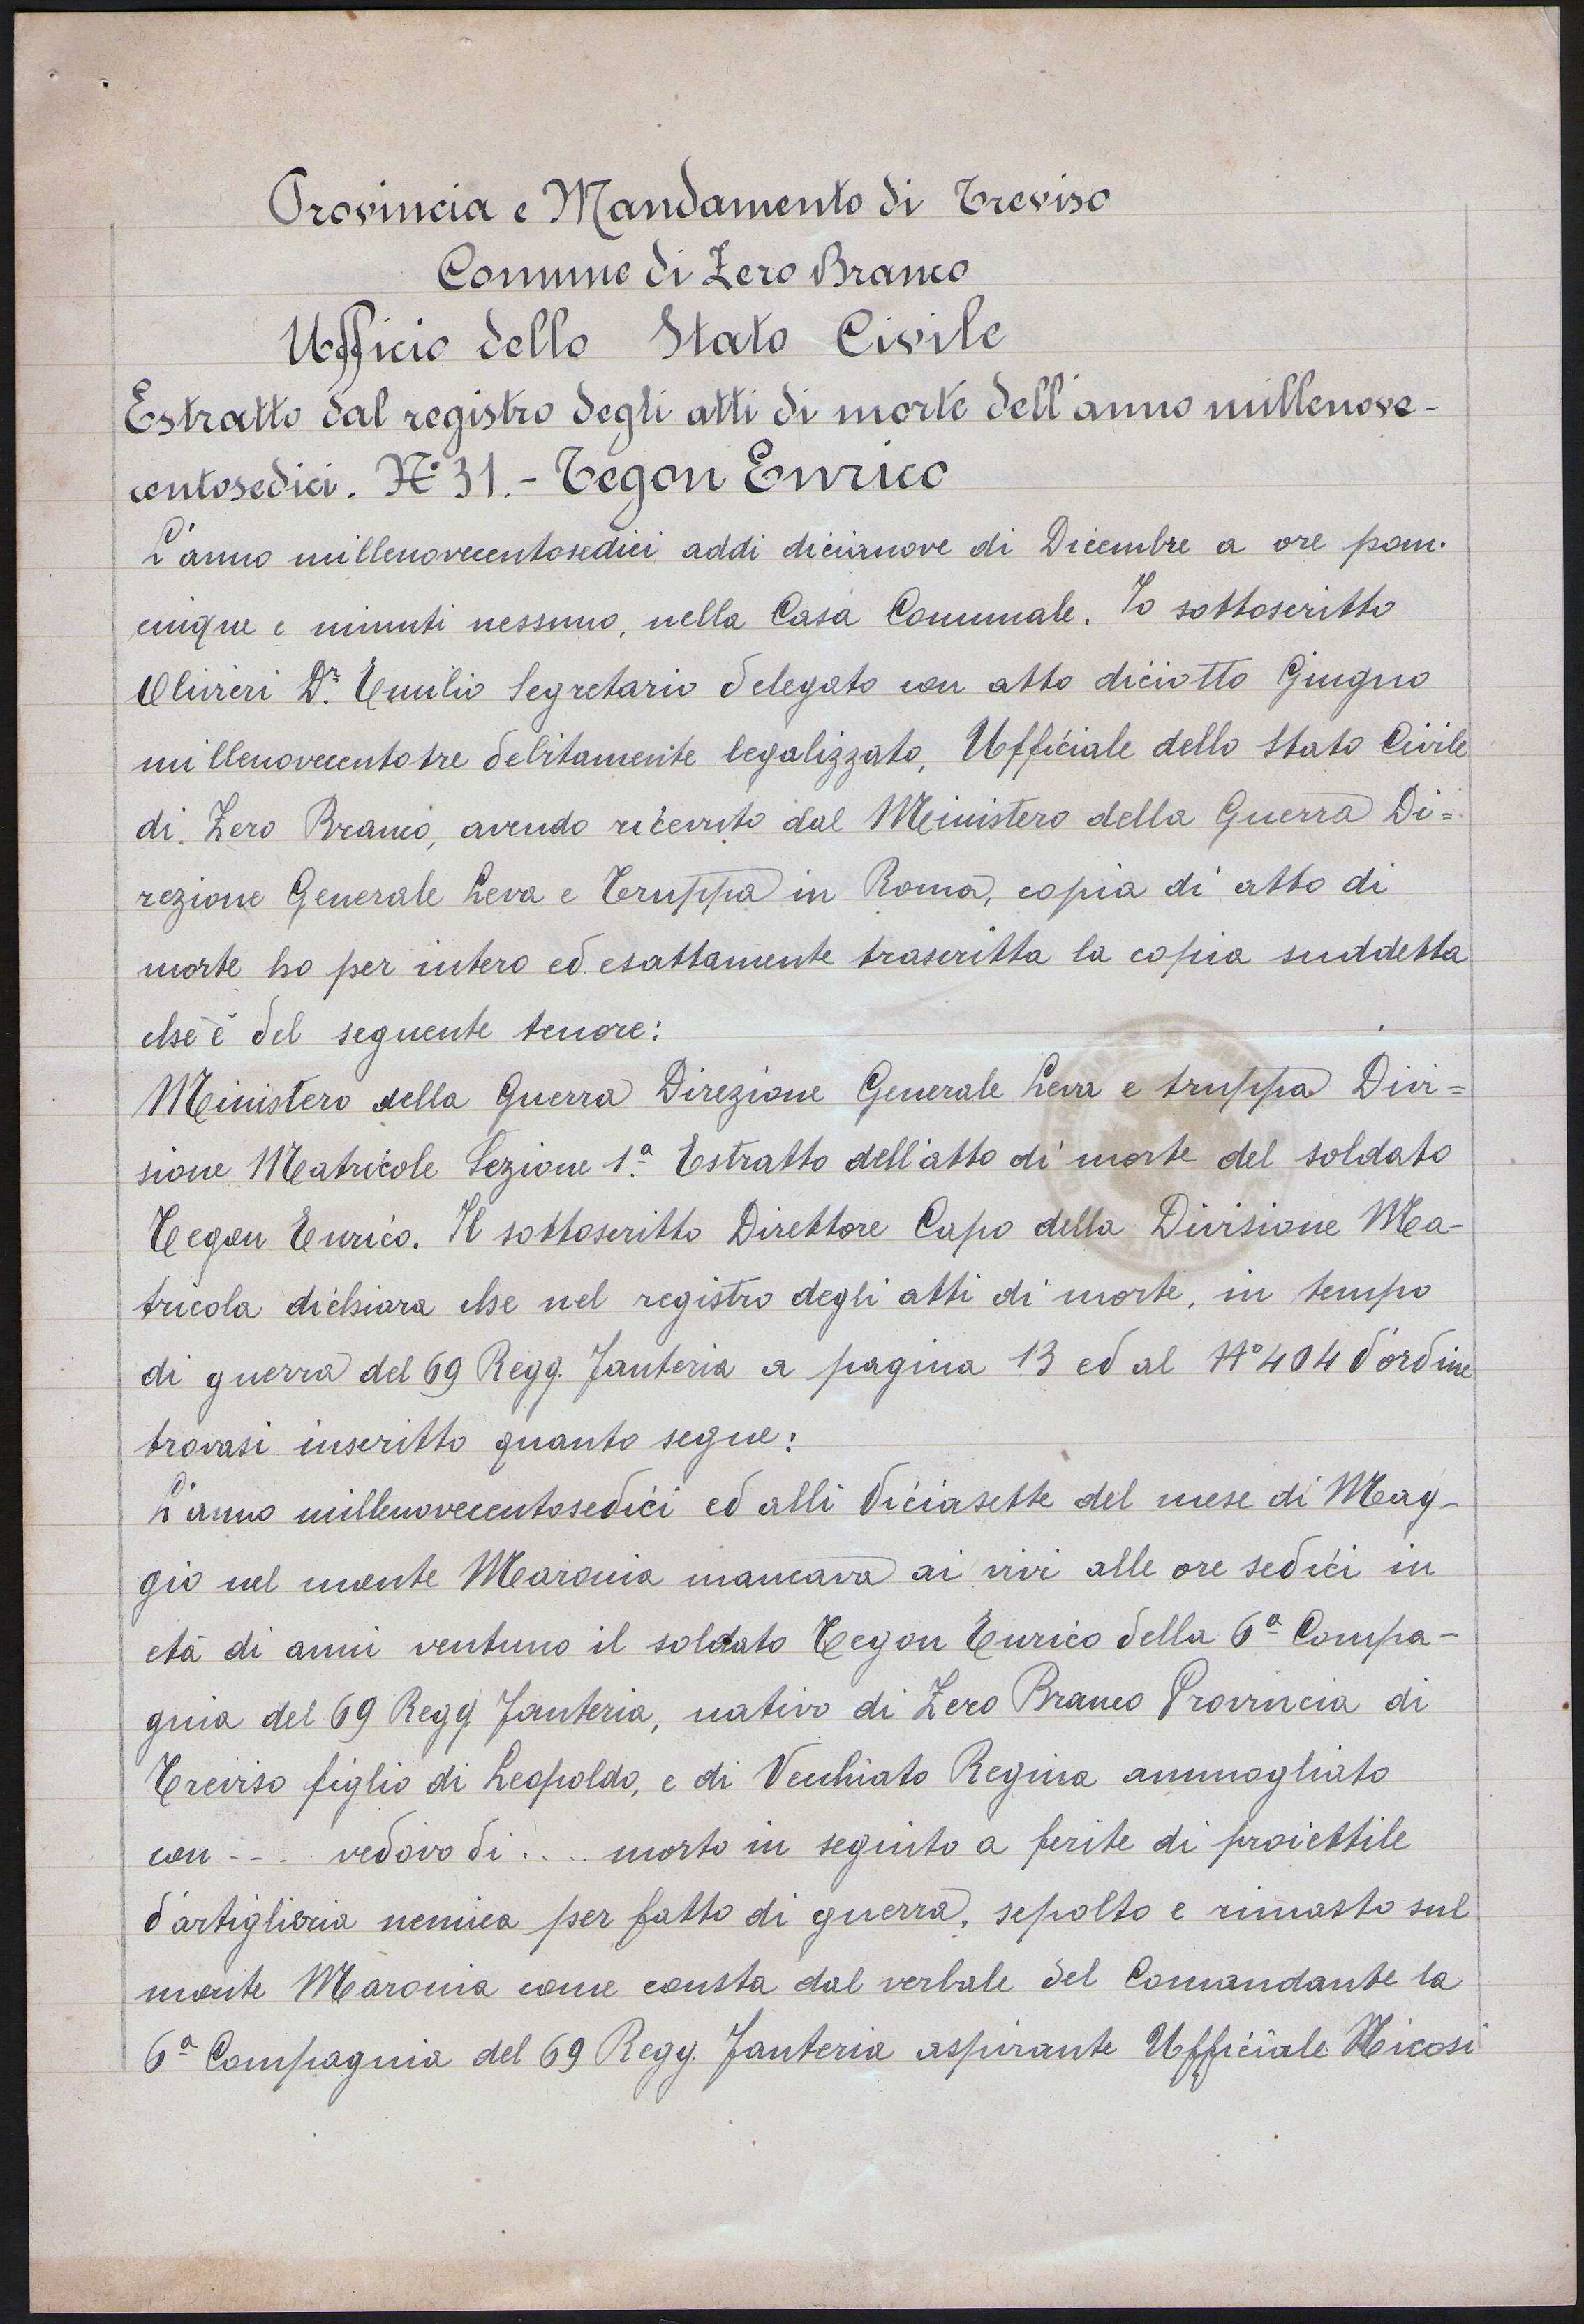 Provincia e Mandamento di Treviso
Comune di Zero Branco
Ufficio dello Stato Civile
Estratto dal registro degli atti di morte dell'anno millenove-
centosedici. N° 31.- Tegon Enrico
L'anno millenovecentosedici addi dicianove di Dicembre a ore pom.
cinque e minuti nessuno, nella Casa Comunale. Io sottoscritto
Olivieri Dr. Emilio Segretario delegato con atto diciotto Giugno
millenovecentotre debitamente legalizzato, Ufficiale dello Stato Civile
di Zero Branco, avendo ricevuto dal Ministero della Guerra Di=
rezione Generale Leva e Truppa in Roma, copia di atto di
morte ho per intero ed esattamente trascritta la copia suddetta
che è del seguente tenore:
Ministero della Guerra Direzione Generale Leva e truppa Divi=
sione Matricole Sezione 1ª Estratto dell'atto di morte del soldato
Tegon Enrico. Il sottoscritto Direttore Capo della Divisione Ma-
tricola dichiara che nel registro degli atti di morte, in tempo
di guerra del 69 Regg. Fanteria a pagina 13 ed al N° 404 d'ordine
trovasi inscritto quanto segue:
L'anno millenovecentosedici ed alli diciasette del mese di Mag-
gio nel monte Maronia mancava ai vivi alle ore sedici in
età di anni ventuno il soldato Tegon Enrico della 6ª Compa-
gnia del 69 Regg. Fanteria, nativo di Zero Branco Provincia di
Treviso figlio di Leopoldo, e di Vecchiato Regina ammogliato
con --- vedovo di .... morto in seguito a ferite di proiettile
d'artiglieria nemica per fatto di guerra, sepolto e rimasto sul
monte Maronia come consta dal verbale del Comandante la
6ª Compagnia del 69 Regg. Fanteria aspirante Ufficiale Nicosi